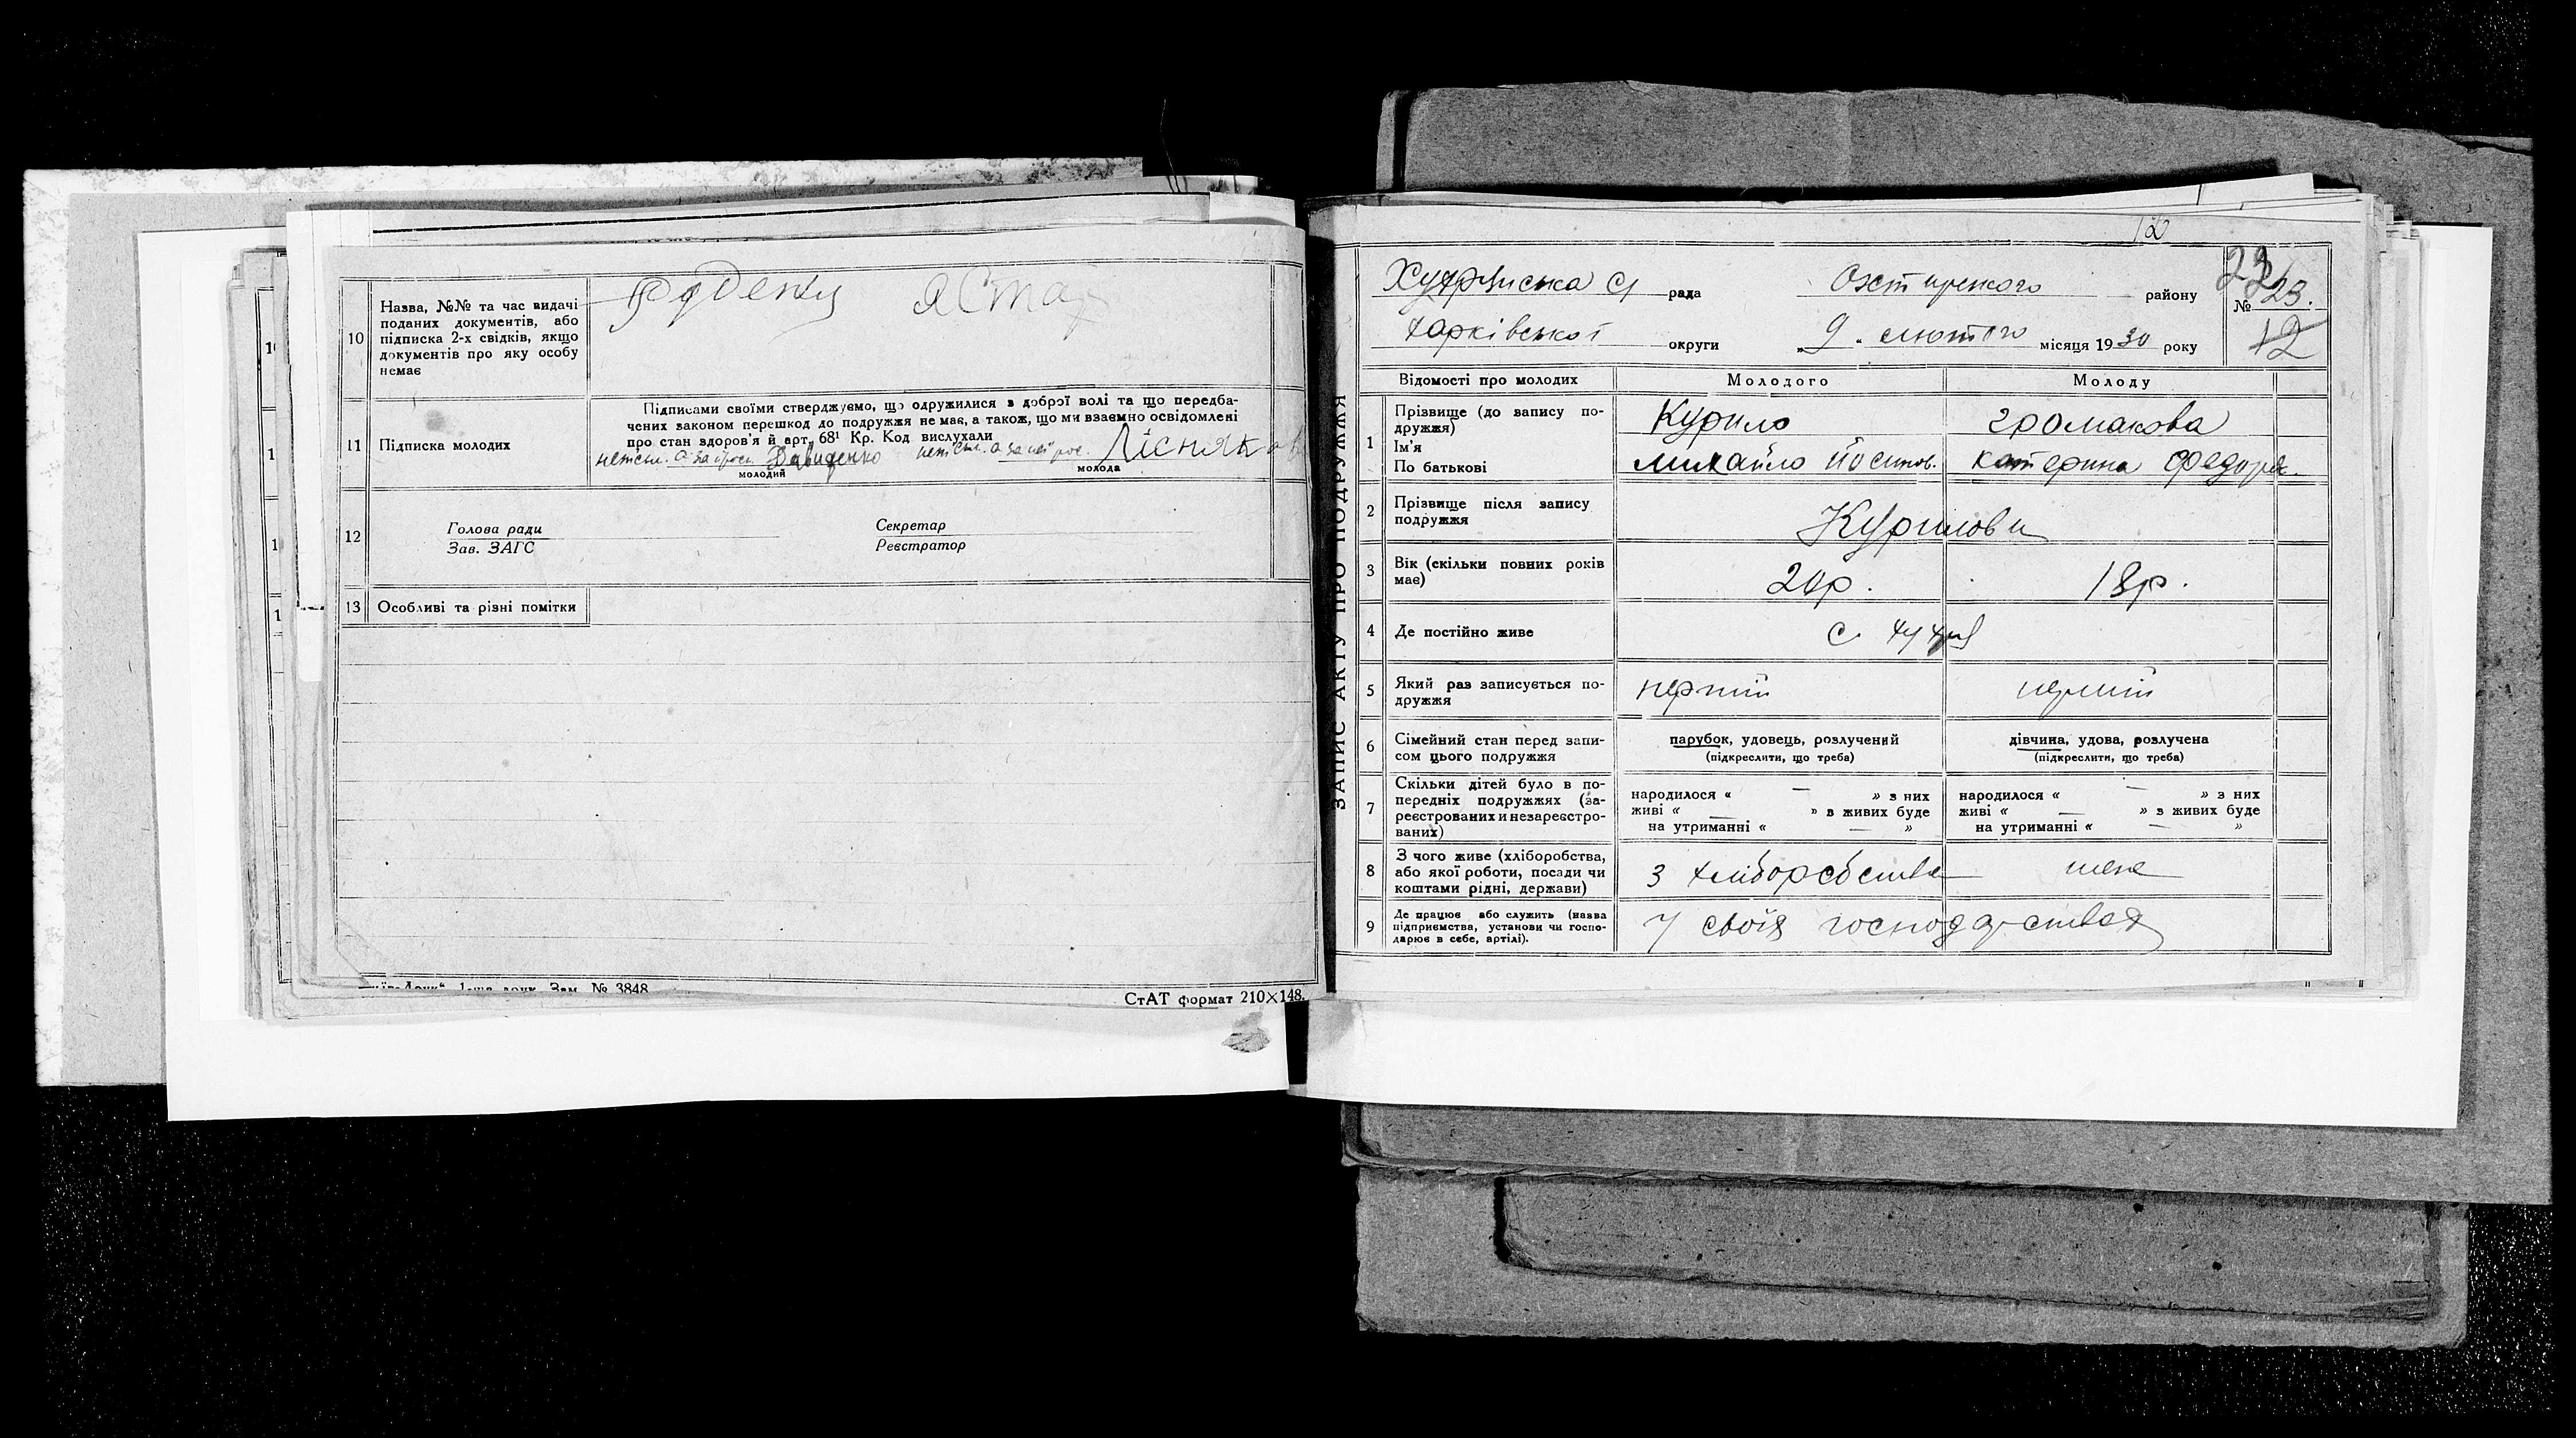 10 Назва, №№ та час видачі
поданих документів, або
підписка 2-х свідків, якщо
документів про яку особу
немає
11 Підписка молодих
Підписами своїми стверджуємо, що одружилися з доброї волі та що передба-
чених законом перешкод до подружжя не має, а також, що ми взаємно освідомлені
про стан здоров'я й арт. 68¹ Кр. Код вислухали
Давиденко
молодий молода
12 Голова ради Секретар
Зав. ЗАГС Реєстратор
13 Особливі та різні помітки
Зам. № 3848
СтАТ формат 210×148.
ЗАПИС АКТУ ПРО ПОДРУЖЖЯ
12
рада району
23
№ 23.
12
Харківської округи „9" лютого місяця 1930 року
Відомості про молодих Молодого Молоду
1 Прізвище (до запису по-
дружжя)
Ім'я
По батькові
Курило громакова
михайло Йосипов. катерина
2 Прізвище після запису
подружжя
Курилови
3 Вік (скільки повних років
має)
20р. 18р.
4 Де постійно живе
с.
5 Який раз записується по-
дружжя
перший перший
6 Сімейний стан перед запи-
сом цього подружжя
парубок, удовець, розлучений дівчина, удова, розлучена
(підкреслити, що треба) (підкреслити, що треба)
7 Скільки дітей було в по-
передніх подружжях (за-
реєстрованих и незареєстро-
ваних)
народилося « — » з них народилося « — » з них
живі « — » в живих буде живі « — » з живих буде
на утриманні « — » на утриманні « — »
8 З чого живе (хліборобства,
або якої роботи, посади чи
коштами рідні, держави)
З хліборобства теж
9 Де працює або служить (назва
підприємства, установи чи госпо-
дарює в себе, артілі).
У своїх господарствах